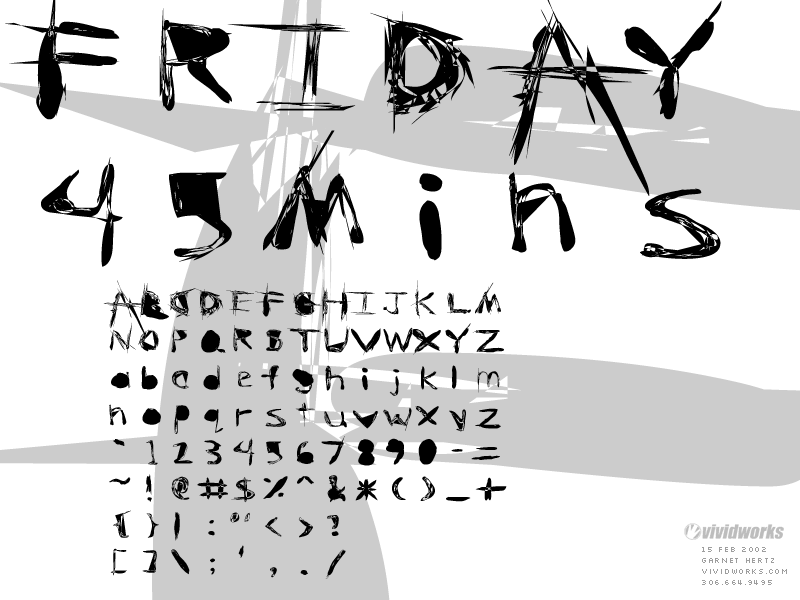 FRIDAY
45Mins
ABCDEFGHIJKLM
NOPQRSTUVWXYZ
abcdefghijklm
nopqrstuvwxyz
`1234567890-=
~!@#$%^&*()_+
{}|:"<>?
[]\;',./
vividworks
15 FEB 2002
GARNET HERTZ
VIVIDWORKS.COM
306.664.9495